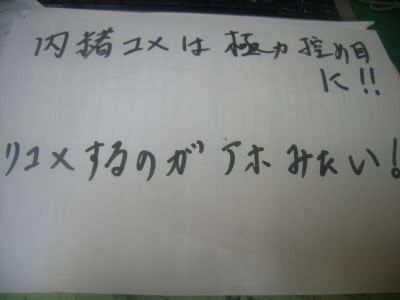 内緒コメは極力控め目
に!!
リコメするのがアホみたい!